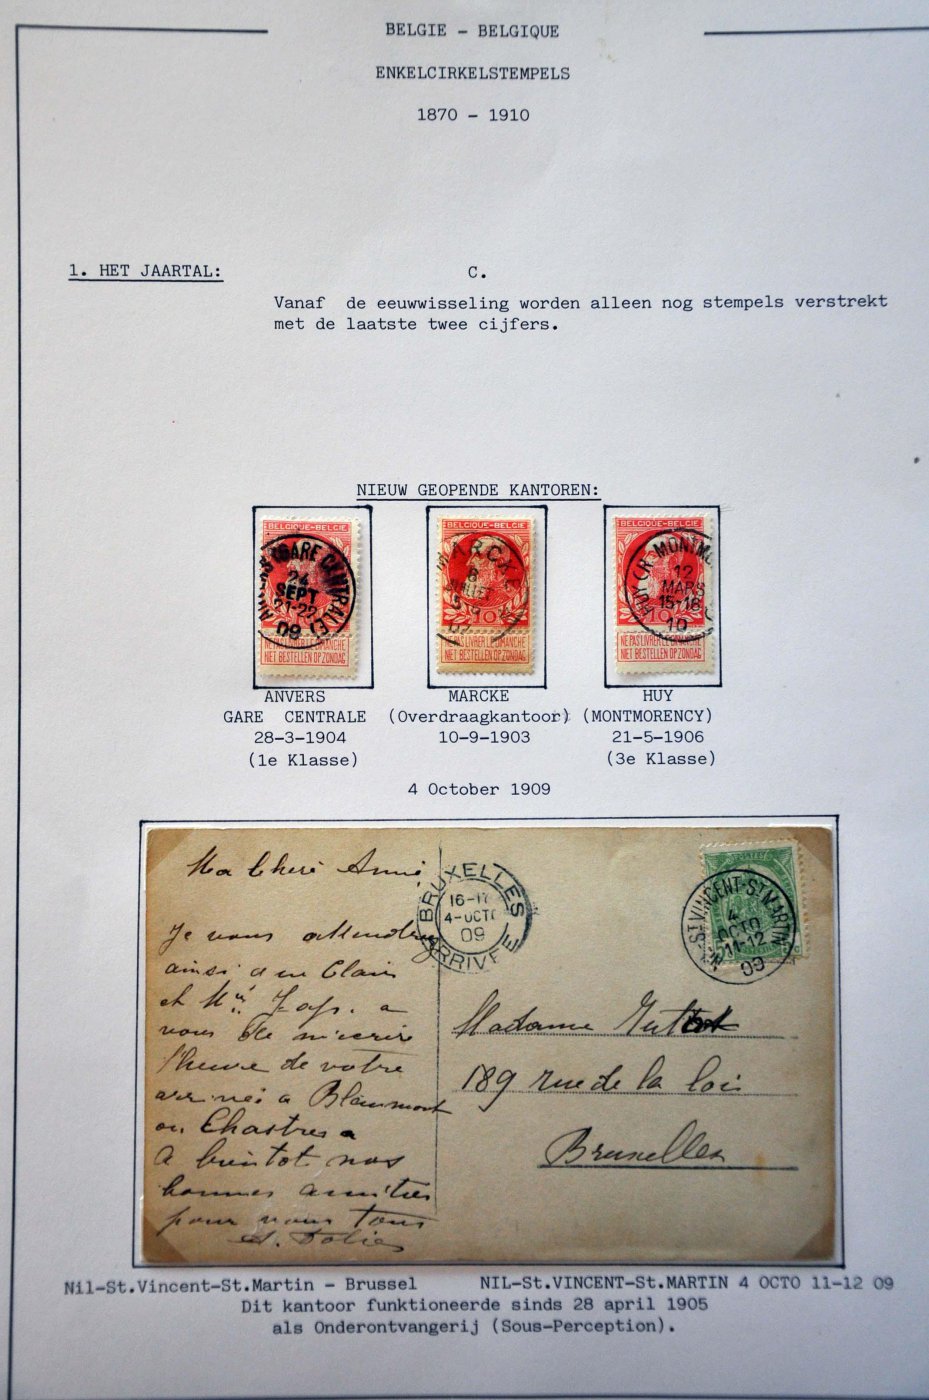 BELGIE - BELGIQUE
ENKELCIRKELSTEMPELS
1870 - 1910
1. HET JAARTAL:
C.
Vanaf de eeuwwisseling worden alleen nog stempels verstrekt
met de laatste twee cijfers.
NIEUW GEOPENDE KANTOREN:
BELGIQUE-BELGIE
(GARE CENTRALE)
24
SEPT
21-22
09
NE PAS LIVRER LE DIMANCHE
NIET BESTELLEN OP ZONDAG
BELGIQUE-BELGIE
MARCKE
8
JUILLET
10
07
NE PAS LIVRER LE DIMANCHE
NIET BESTELLEN OP ZONDAG
BELGIQUE-BELGIE
HUY
12
MARS
15-16
10
10
NE PAS LIVRER LE DIMANCHE
NIET BESTELLEN OP ZONDAG
ANVERS
GARE CENTRALE
28-3-1904
(1e Klasse)
MARCKE
(Overdraagkantoor)
10-9-1903
HUY
(MONTMORENCY)
21-5-1906
(3e Klasse)
4 October 1909
Ma Chère
Je vous
ainsi
et
vous de m'ecrire
l'heure de votre
a
ou Chastres
A bientot nos
bonnes amitiés
pour vous tous
BRUXELLES
4-OCTO
09
ARRIVEE
ST VINCENT-ST MARTIN
4
OCTO
11-12
09
Madame
189 rue de la loi
Bruxelles
Nil-St.Vincent-St.Martin - Brussel
NIL-St.VINCENT-St.MARTIN 4 OCTO 11-12 09
Dit kantoor funktioneerde sinds 28 april 1905
als Onderontvangerij (Sous-Perception).